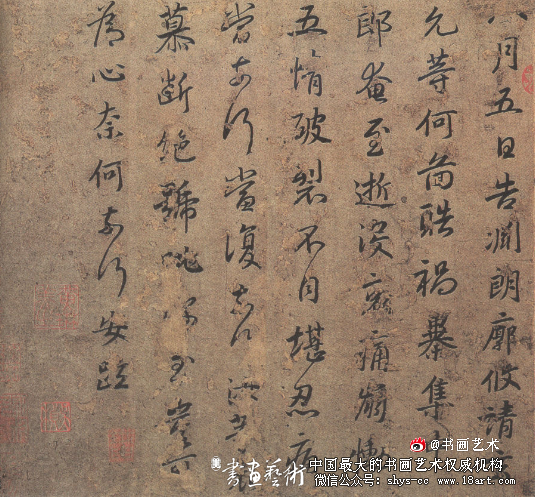 八月五日告淵朗廓攸靖
允等何圖酷禍暴集中
郎奄至逝沒哀痛崩慟
五情破裂不自堪忍痛
當奈何當復奈何汝等
慕斷絕號咷深至豈可
為心奈何奈何安疏
@书画艺术
書画藝術
中国最大的书画艺术权威机构
微信公众号：shys-cc www.18art.com